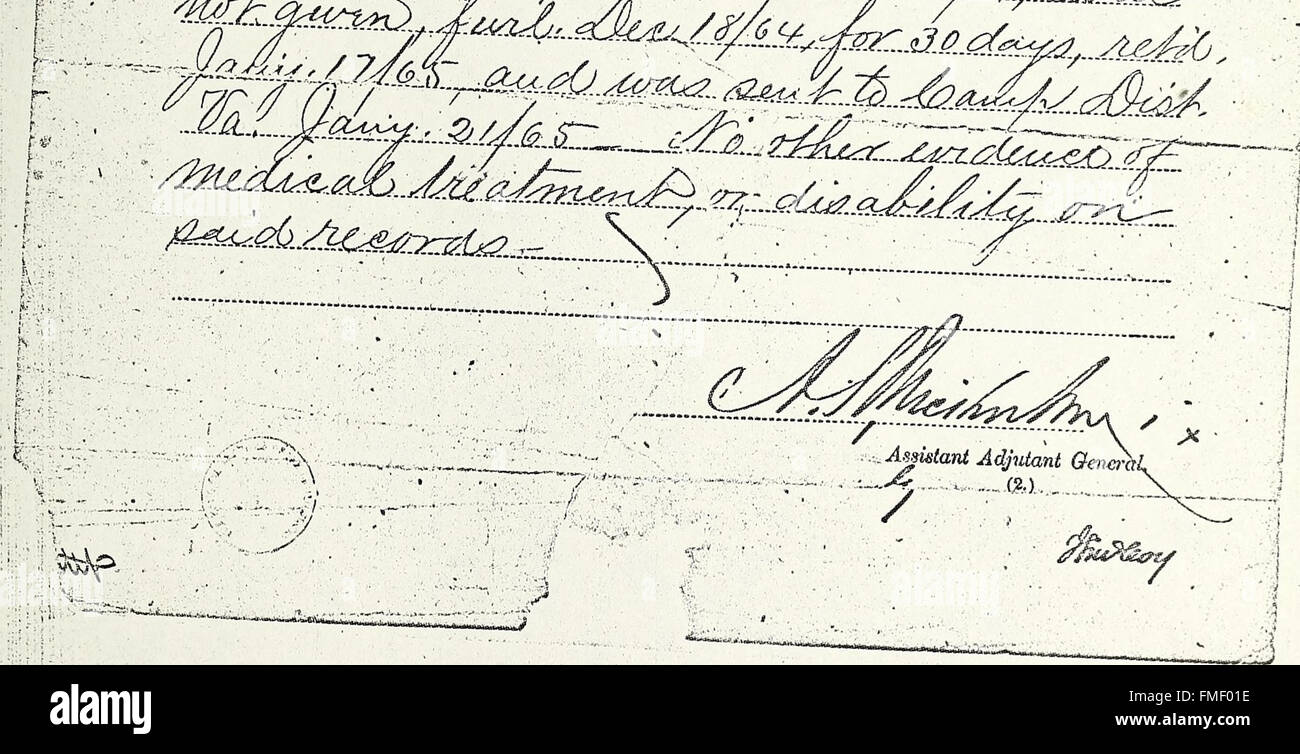 not given, furl. Dec. 18/64, for 30 days, ret'd,
Jan'y. 17/65, and was sent to Camp Dist.
Va. Jan'y. 21/65 – No other evidence of
medical treatment, or disability on
said records –
Assistant Adjutant General.
(2.)
alamy
Image ID: FMF01E
www.alamy.com